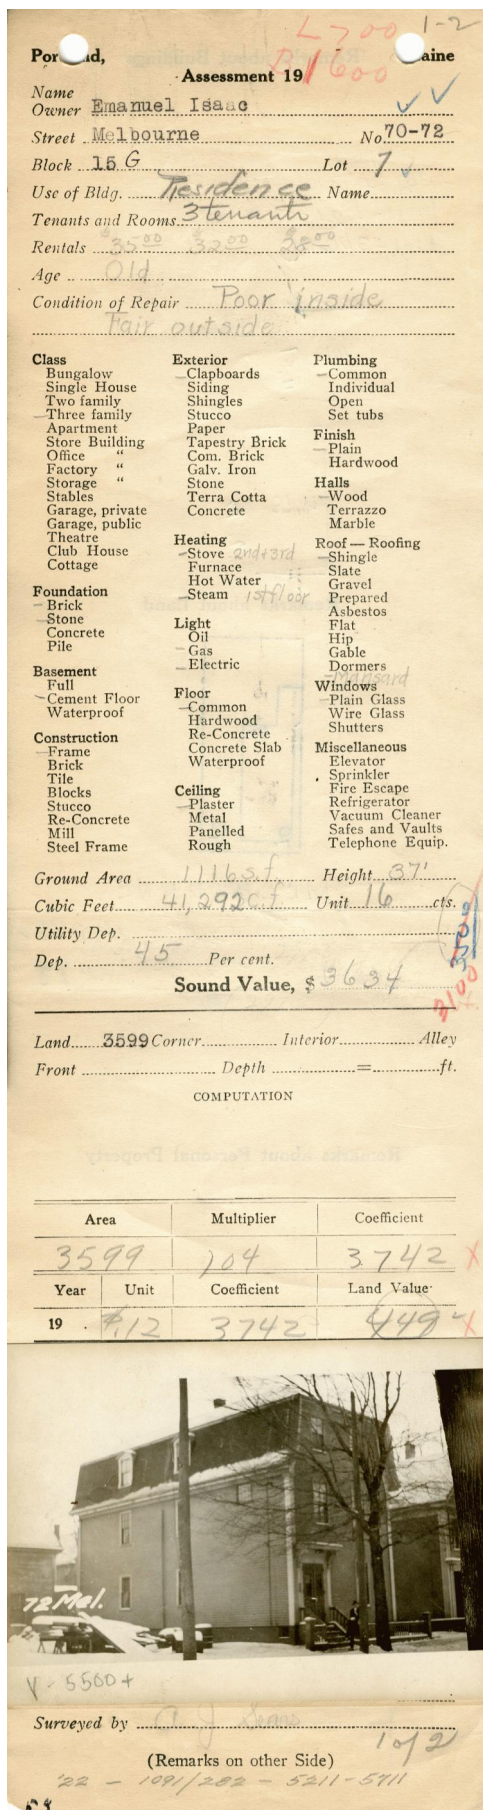 L 700 1-2
Portland, Maine
B 1600
Assessment 19
Name
Owner Emanuel Isaac
Street Melbourne No. 70-72
Block 15 G Lot 7
Use of Bldg. Residence Name
Tenants and Rooms 3 tenants
Rentals $35.00 $32.00 $38.00
Age Old
Condition of Repair Poor inside
Fair outside
Class
Bungalow
Single House
Two family
Three family
Apartment
Store Building
Office "
Factory "
Storage "
Stables
Garage, private
Garage, public
Theatre
Club House
Cottage
Foundation
Brick
Stone
Concrete
Pile
Basement
Full
Cement Floor
Waterproof
Construction
Frame
Brick
Tile
Blocks
Stucco
Re-Concrete
Mill
Steel Frame
Exterior
Clapboards
Siding
Shingles
Stucco
Paper
Tapestry Brick
Com. Brick
Galv. Iron
Stone
Terra Cotta
Concrete
Heating
Stove 2nd+3rd
Furnace
Hot Water
Steam 1st floor
Light
Oil
Gas
Electric
Floor
Common
Hardwood
Re-Concrete
Concrete Slab
Waterproof
Ceiling
Plaster
Metal
Panelled
Rough
Plumbing
Common
Individual
Open
Set tubs
Finish
Plain
Hardwood
Halls
Wood
Terrazzo
Marble
Roof — Roofing
Shingle
Slate
Gravel
Prepared
Asbestos
Flat
Hip
Gable
Dormers
Mansard
Windows
Plain Glass
Wire Glass
Shutters
Miscellaneous
Elevator
Sprinkler
Fire Escape
Refrigerator
Vacuum Cleaner
Safes and Vaults
Telephone Equip.
Ground Area 1116 s.f. Height 37'
Cubic Feet 41,292 c.f. Unit 16 cts.
Utility Dep.
Dep. 45 Per cent.
3500
3100
Sound Value, $ 3634
Land 3599 Corner Interior Alley
Front Depth = ft.
COMPUTATION
Area Multiplier Coefficient
3599 104 3.742 X
Year Unit Coefficient Land Value
19 . $.12 3742 449 X
72 Mel.
V - 5500+
Surveyed by A J Sears
1 of 2
(Remarks on other Side)
'22 - 1091/282 - 5211-5711